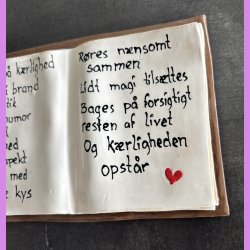 på kærlighed
brand
tik
humor
d
spekt
med
e kys
Røres nænsomt
sammen
Lidt magi tilsættes
Bages på forsigtigt
resten af livet
Og kærligheden
opstår